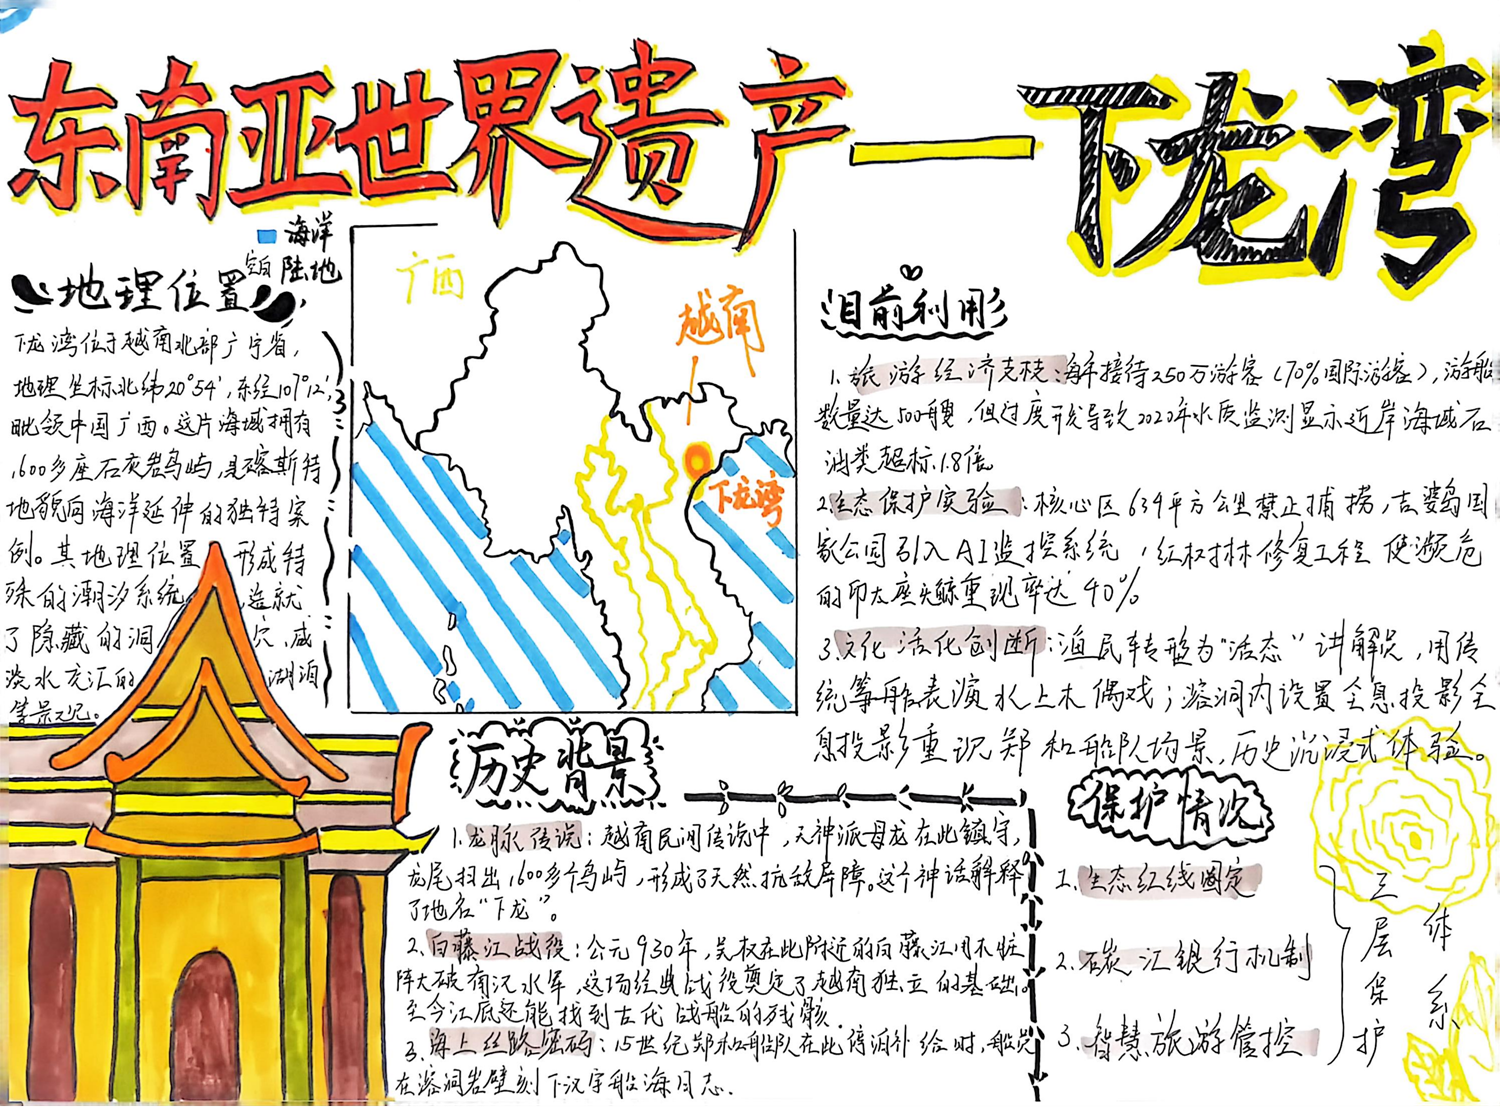 东南亚世界遗产——下龙湾
海洋
空白 陆地
地理位置
下龙湾位于越南北部广宁省，
地理坐标北纬20°54′，东经107°12′，
毗邻中国广西。这片海域拥有
1600多座石灰岩岛屿，是喀斯特
地貌向海洋延伸的独特案
例。其地理位置形成特
殊的潮汐系统，造就
了隐藏的洞穴、咸
淡水交汇的湖泊
等景观。
广西
越南
下龙湾
目前利用
1.旅游经济支柱：每年接待250万游客（70%国际游客），游船
数量达500艘，但过度开发导致2020年水质监测显示近岸海域石
油类超标1.8倍
2.生态保护实验：核心区434平方公里禁止捕捞，吉婆岛国
家公园引入AI监控系统，红树林修复工程使濒危
的印太座头鲸重现率达40%
3.文化活化创新：渔民转型为“活态”讲解员，用传
统竹船表演水上木偶戏；溶洞内设置全息投影全
息投影重现郑和船队场景，历史沉浸式体验。
历史背景
1.龙脉传说：越南民间传说中，天神派母龙在此镇守，
龙尾扫出1600多个岛屿，形成了天然抗敌屏障。这个神话解释
了地名“下龙”。
2.白藤江战役：公元930年，吴权在此附近的白藤江用木桩
阵大破南汉水军，这场经典战役奠定了越南独立的基础。
至今江底还能找到古代战船的残骸.
3.海上丝路密码：15世纪郑和船队在此停泊补给时，船员
在溶洞岩壁刻下汉字航海日志.
保护情况
1.生态红线固定
2.碳汇银行机制
3.智慧旅游管控
三层保护
体系